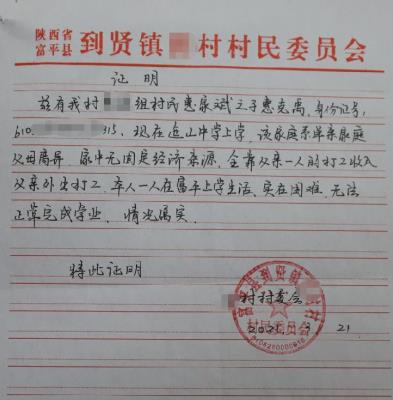 陕西省
富平县 到贤镇 村村民委员会
证明
兹有我村 组村民惠康斌之子惠克禹,身份证号,
610 315,现在迤山中学上学,该家庭系单亲家庭
父母离异,家中无固定经济来源,全靠父亲一人的打工收入
父亲外出打工,本人一人在富平上学生活,实在困难,无法
正常完成学业,情况属实.
特此证明
村村委会
富平县到贤镇 村民委员会
202 21